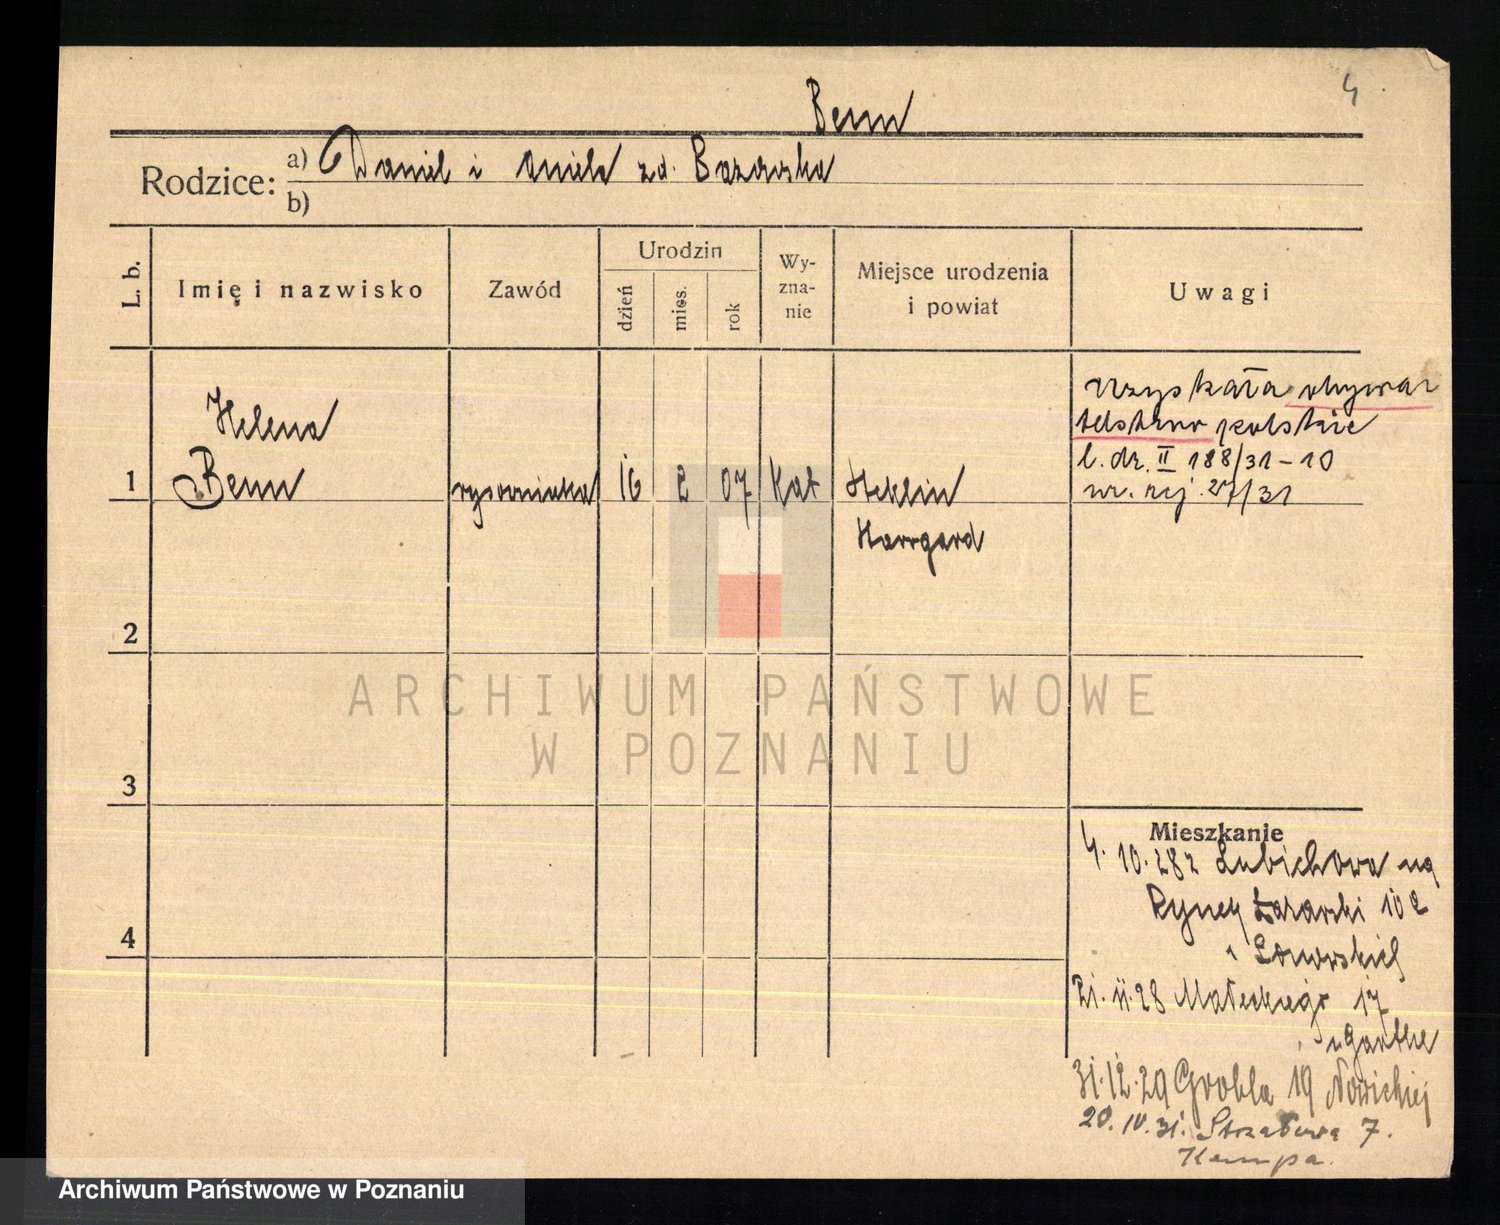 4
Benn
Rodzice: a) Daniel i Aniela zd. Bazarska
b)
L. b.
Imię i nazwisko
Zawód
Urodzin
dzień
mies.
rok
Wy-
zna-
nie
Miejsce urodzenia
i powiat
Uwagi
1
Helena
Benn
rysowniczka
16
2
07
Kat
Heklin
Harrgard
Uzyskała obywa-
telstwo polskie
l. dz. II 188/31-10
nr. rej. 27/31
2
3
4
Mieszkanie
4.10.28 z Lubichowa na
Rynek Łazarski 10
u
21.11.28 Małeckiego 17
u Garthe
31.12.29 Grobla 19 Nowickiej
20.IV.31. Strzałowa 7.
Kempa.
ARCHIWUM PAŃSTWOWE
W POZNANIU
Archiwum Państwowe w Poznaniu